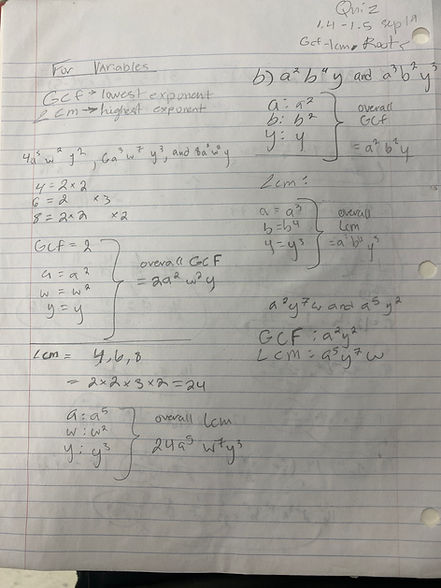 Quiz
1.4 - 1.5 Sep 19
Gcf - lcm, Roots
For Variables
GCF → lowest exponent
LCM → highest exponent
4a⁵ w² y², 6a³ w⁷ y³, and 8a² w² y
4 = 2 × 2
6 = 2 × 3
8 = 2 × 2 × 2
GCF = 2
a = a²
w = w²
y = y
overall GCF
= 2a² w² y
Lcm = 4, 6, 8
= 2 × 2 × 3 × 2 = 24
a : a⁵
w : w²
y : y³
overall Lcm
24a⁵ w⁷ y³
b) a² b⁴ y and a³ b² y³
a : a²
b : b²
y : y
overall
GCF
= a² b² y
Lcm :
a = a³
b = b⁴
y = y³
overall
Lcm
= a³ b⁴ y³
a² y⁷ w and a⁵ y²
GCF : a² y²
LCM = a⁵ y⁷ w